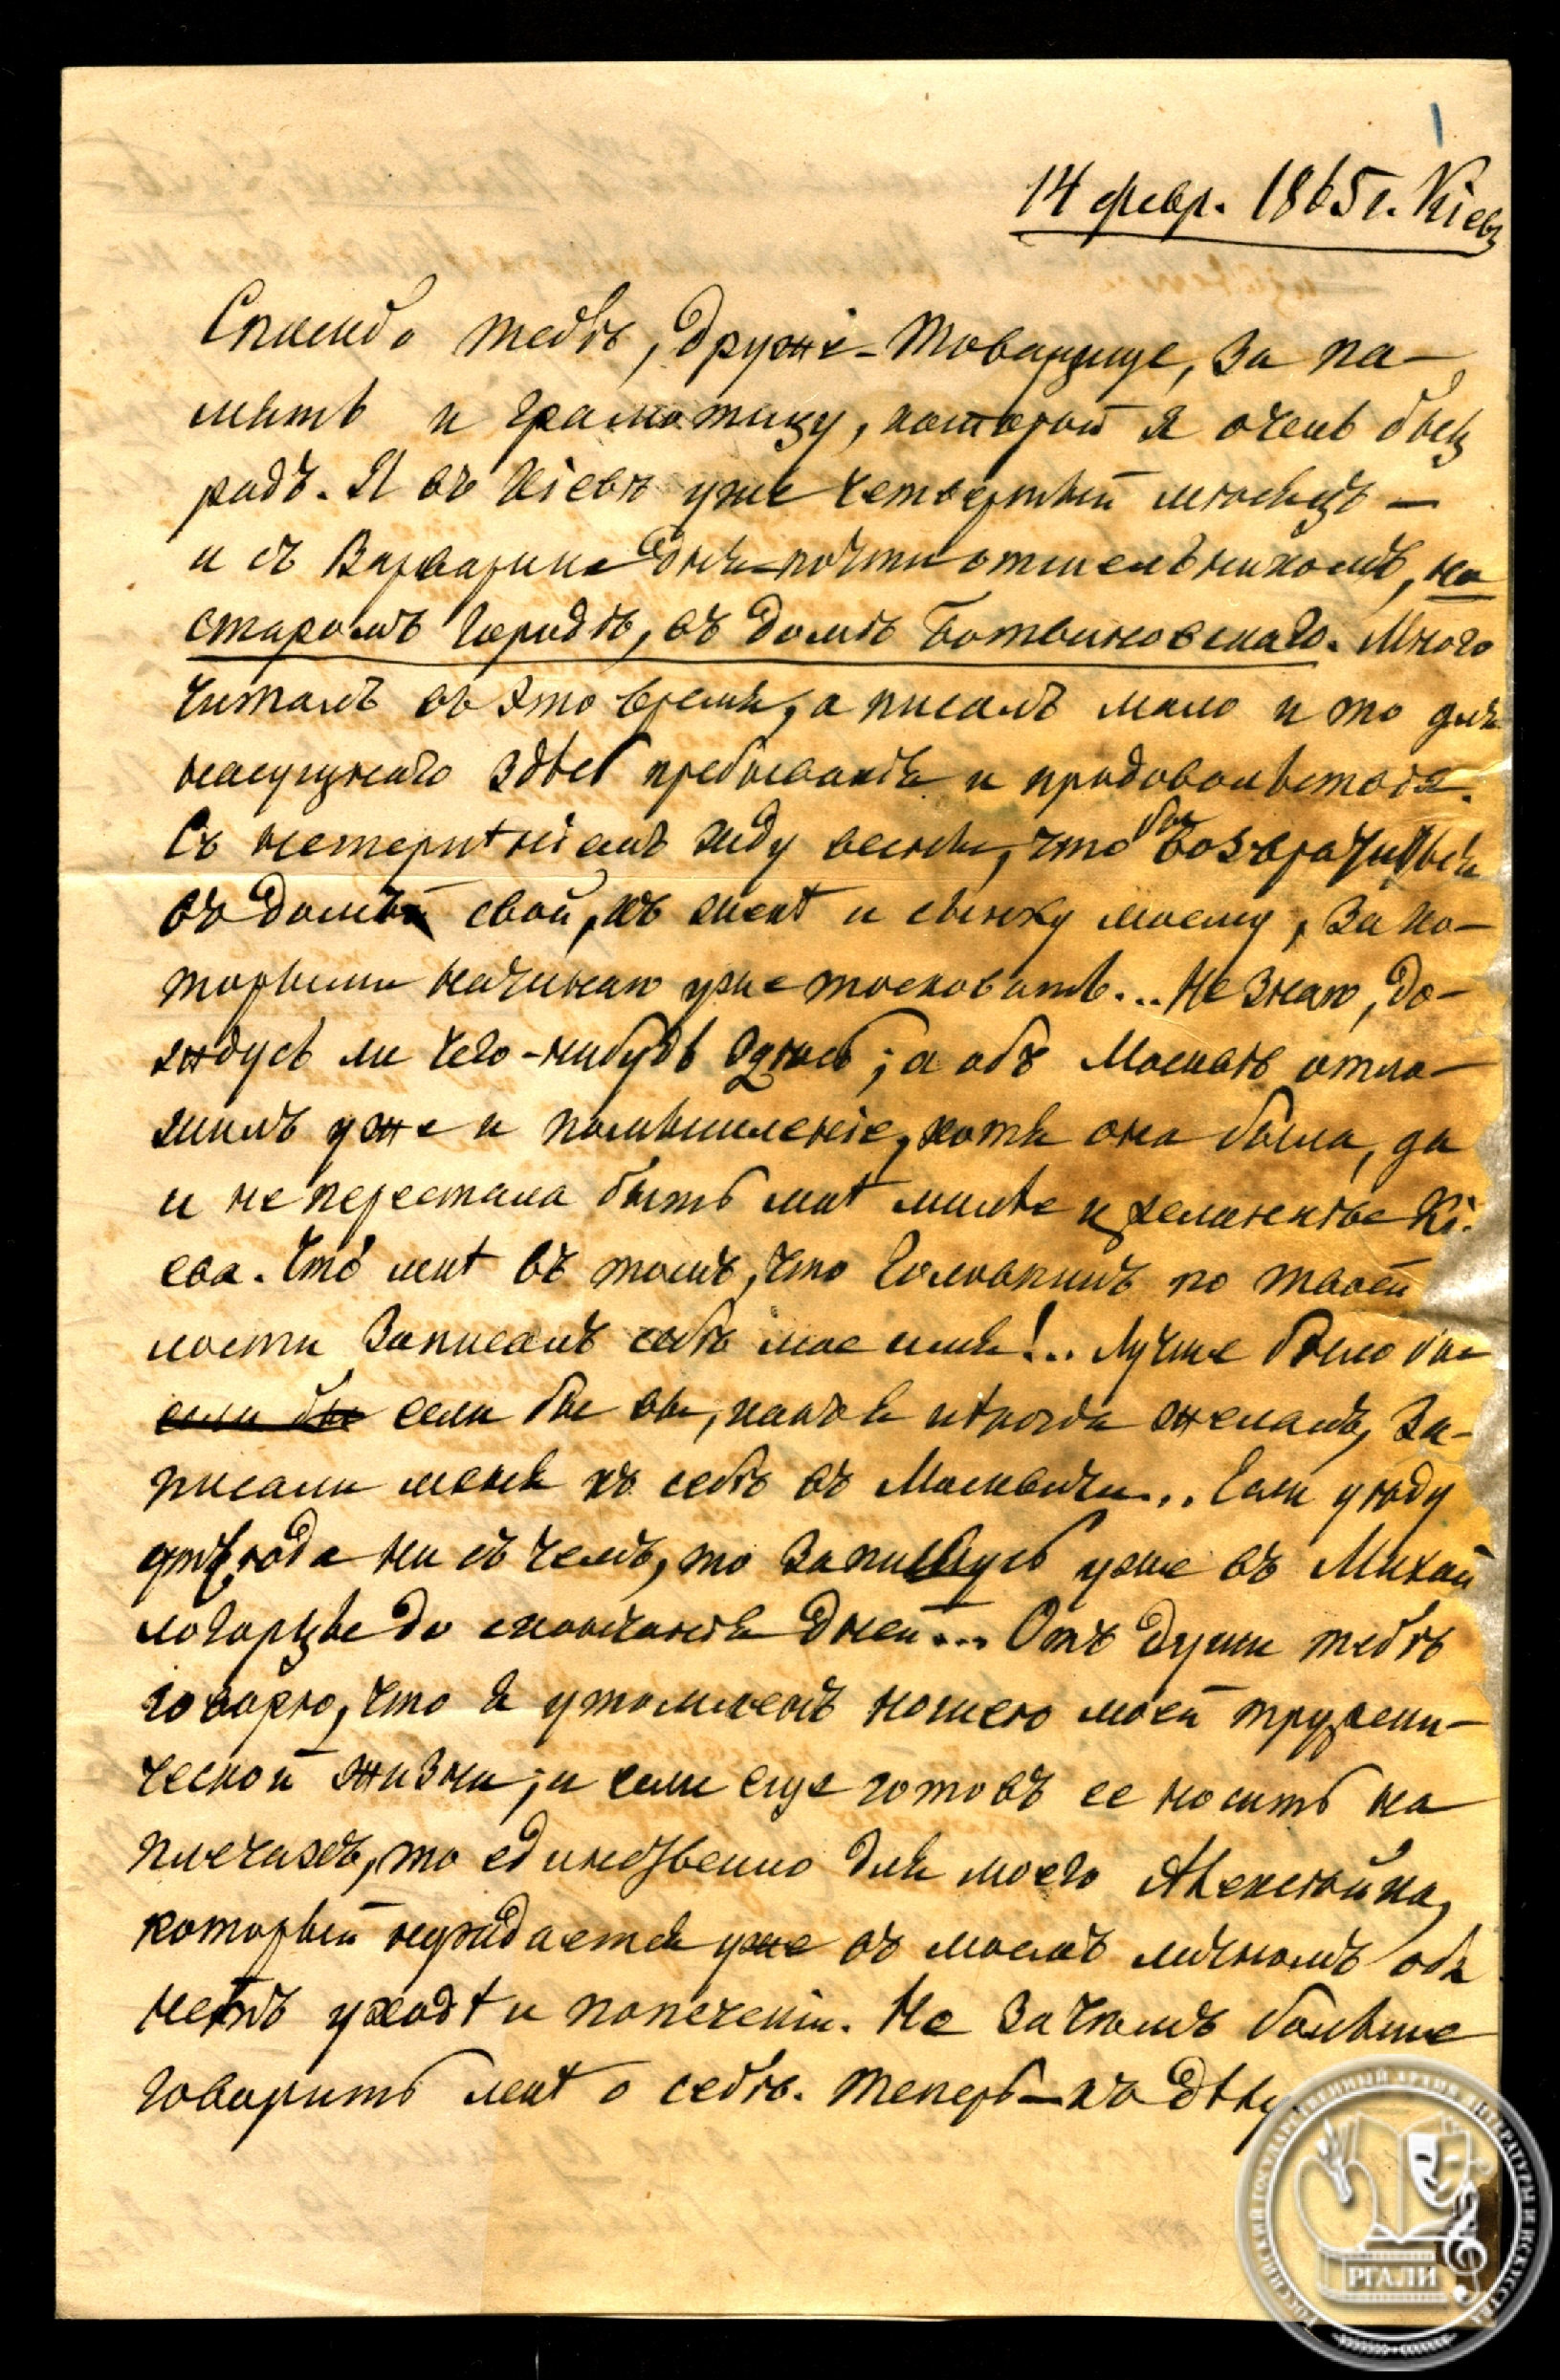 1
14 февр. 1865 г. Кіевъ
Спасибо тебѣ, друже-товарище, за па-
мять и граматицу, которой я очень былъ
радъ. Я въ Кіевѣ уже четвертый мѣсяцъ —
и съ Варварина дня почти отшельникомъ, на
старомъ городѣ, въ домѣ Ботвиновскаго. Много
читалъ въ это время, а писалъ мало и то для
насущнаго здѣсь пребыванія и продовольствія.
Съ нетерпѣніемъ жду весны, что бы возвратиться
въ домъ свой, къ женѣ и сынку моему, за ко-
торыми начинаю уже тосковать... Не знаю, до-
ждусь ли чего-нибудь здѣсь; а объ Москвѣ отло-
жилъ уже и помышленіе, хотя она была, да
и не перестала быть мнѣ милѣе и желаннѣе Кі-
ева. Что мнѣ въ томъ, что Головнинъ по твоей
лости записалъ себѣ мое имя!.. Лучше было бы
если бы если бы вы, какъ я нѣкогда желалъ, за-
писали меня къ себѣ въ Москвичи... Если уѣду
отсюда ни съ чемъ, то запишусь уже въ Михай
логорцы до скончанія дней... Отъ души тебѣ
говорю, что я утомленъ ношею моей тружени-
ческой жизни; и если еще готовъ ее носить на
плечахъ, то единственно для моего Алексѣйка,
который нуждается уже въ моемъ личномъ объ
немъ уходѣ и попеченіи. Не зачѣмъ больше
говорить мнѣ о себѣ. Теперь — къ дѣлу
РОССИЙСКИЙ ГОСУДАРСТВЕННЫЙ АРХИВ ЛИТЕРАТУРЫ И ИСКУССТВА
РГАЛИ